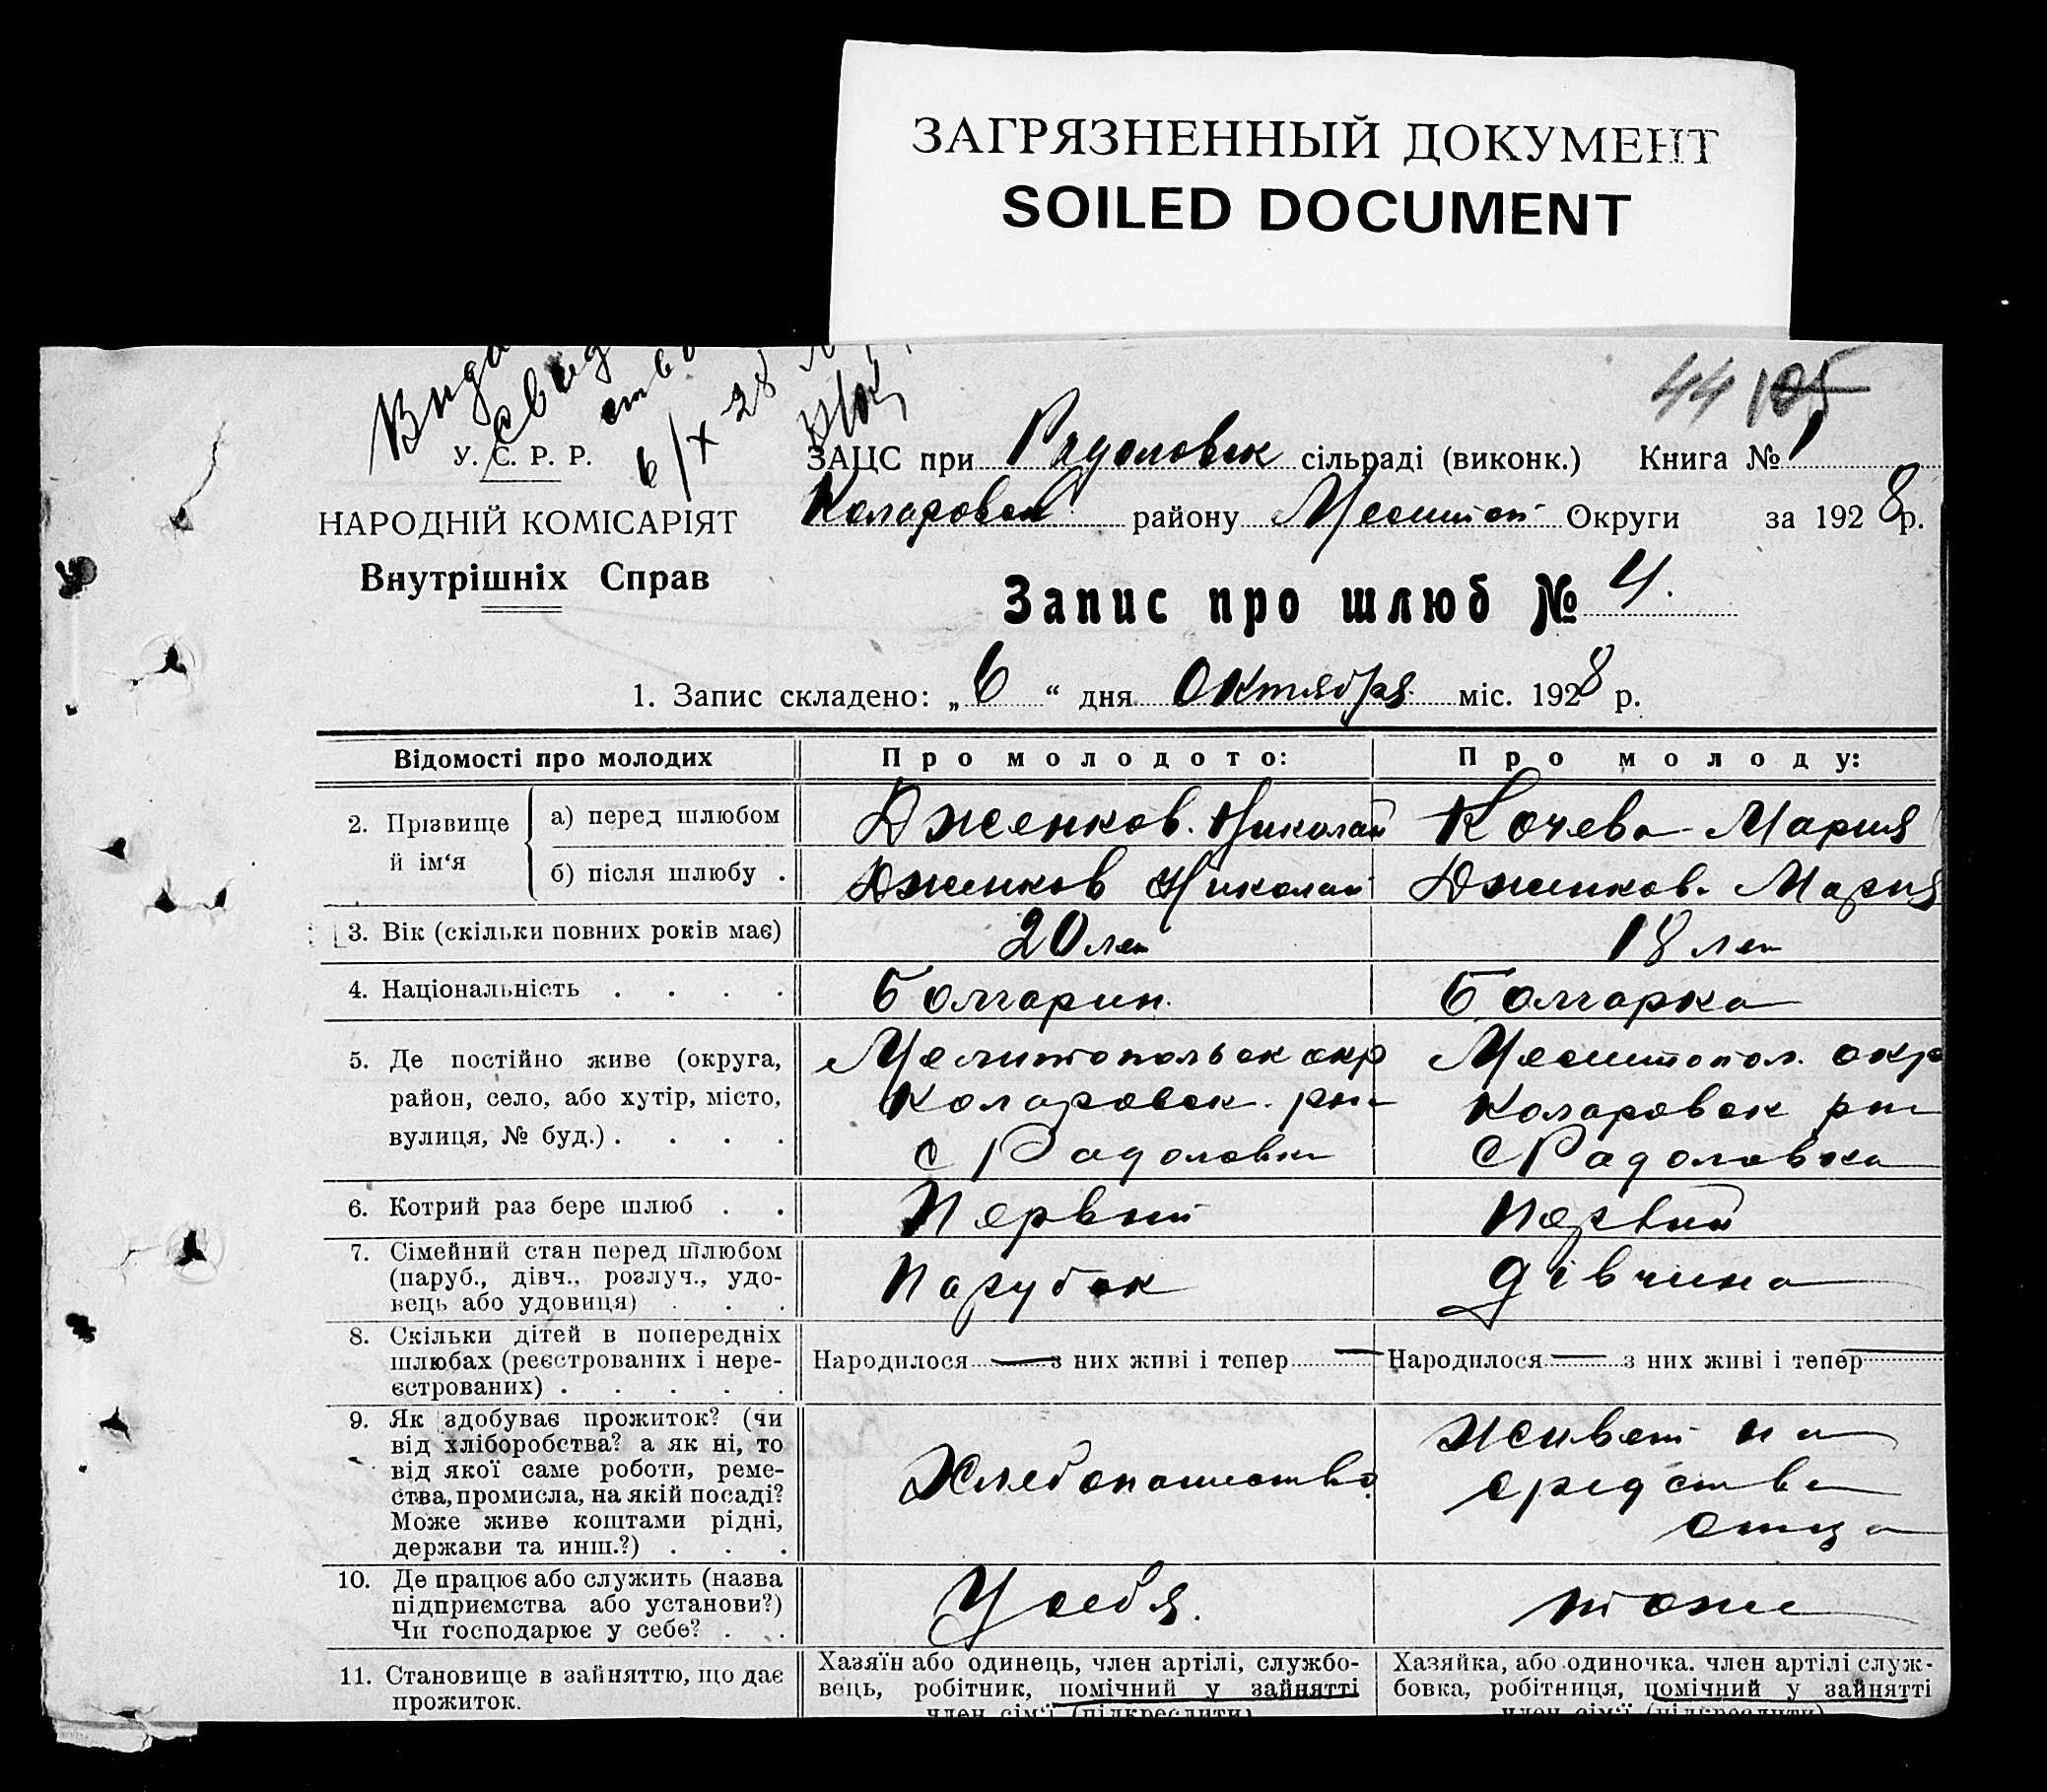 ЗАГРЯЗНЕННЫЙ ДОКУМЕНТ
SOILED DOCUMENT
44 105
6/X 28
У. С. Р. Р.
НАРОДНІЙ КОМІСАРІЯТ
Внутрішніх Справ
ЗАЦС при Радоловск сільраді (виконк.) Книга № 1
Коларовск району Мелитоп Округи за 1928 р.
Запис про шлюб № 4.
1. Запис складено: „6“ дня Октября міс. 1928 р.
Відомості про молодих
Про молодого:
Про молоду:
2. Прізвище й ім‘я
а) перед шлюбом
Дженков Николай
Кочева Мария
б) після шлюбу .
Дженков Николай
Дженков. Мария
3. Вік (скільки повних років має)
20 лет
18 лет
4. Національність . . . .
Болгарин.
Болгарка
5. Де постійно живе (округа,
район, село, або хутір, місто,
вулиця, № буд.) . . . .
Мелитопольск окр
Коларовск. рн
с Радоловка
Мелитопол. окр
Коларовск рн
с Радоловка
6. Котрий раз бере шлюб . .
Первый
Первый
7. Сімейний стан перед шлюбом
(паруб., дівч., розлуч., удо-
вець або удовиця) . . .
Парубок
Дівчина
8. Скільки дітей в попередніх
шлюбах (реєстрованих і нере-
єстрованих) . . . . .
Народилося — з них живі і тепер —
Народилося — з них живі і тепер —
9. Як здобуває прожиток? (чи
від хліборобства? а як ні, то
від якої саме роботи, реме-
ства, промисла, на якій посаді?
Може живе коштами рідні,
держави та инш.?) . . .
Хлебопашество
Живет на
средства
отца
10. Де працює або служить (назва
підприємства або установи?)
Чи господарює у себе? . .
У себя.
тоже
11. Становище в зайняттю, що дає
прожиток.
Хазяїн або одинець, член артілі, службо-
вець, робітник, помічний у зайнятті
член сім‘ї (підкреслити)
Хазяйка, або одиночка. член артілі служ-
бовка, робітниця, помічний у зайнятті
член сім‘ї (підкреслити)